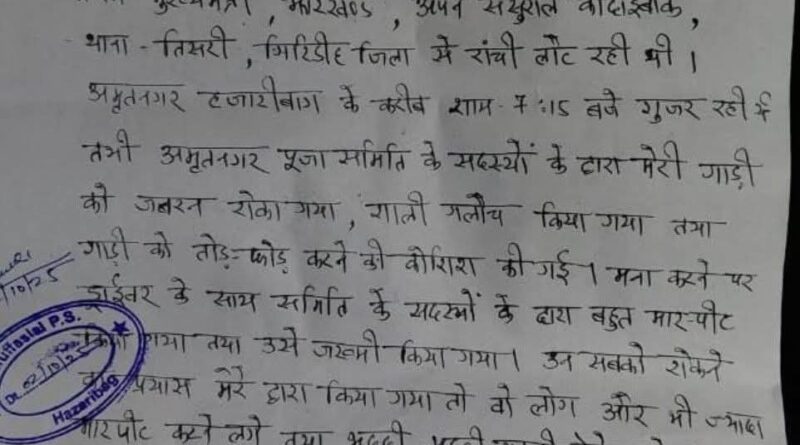 मुख्यमंत्री, झारखण्ड, अपने ससुराल
थाना - तिसरी, गिरिडीह जिला से रांची लौट रही थी।
अमृतनगर हजारीबाग के करीब शाम 7:15 बजे गुजर रही
तभी अमृतनगर पूजा समिति के सदस्यों के द्वारा मेरी गाड़ी
को जबरन रोका गया, गाली गलौच किया गया तथा
गाड़ी को तोड़-फोड़ करने की कोशिश की गई। मना करने पर
ड्राईवर के साथ समिति के सदस्यों के द्वारा बहुत मार-पीट
किया गया तथा उसे जख्मी किया गया। उन सबको रोकने
प्रयास मेरे द्वारा किया गया तो वो लोग और भी ज्यादा
मारपीट करने लगे तथा भद्दी
/10/25
Muffasial P.S.
Dt. 02/10/25
Hazaribag